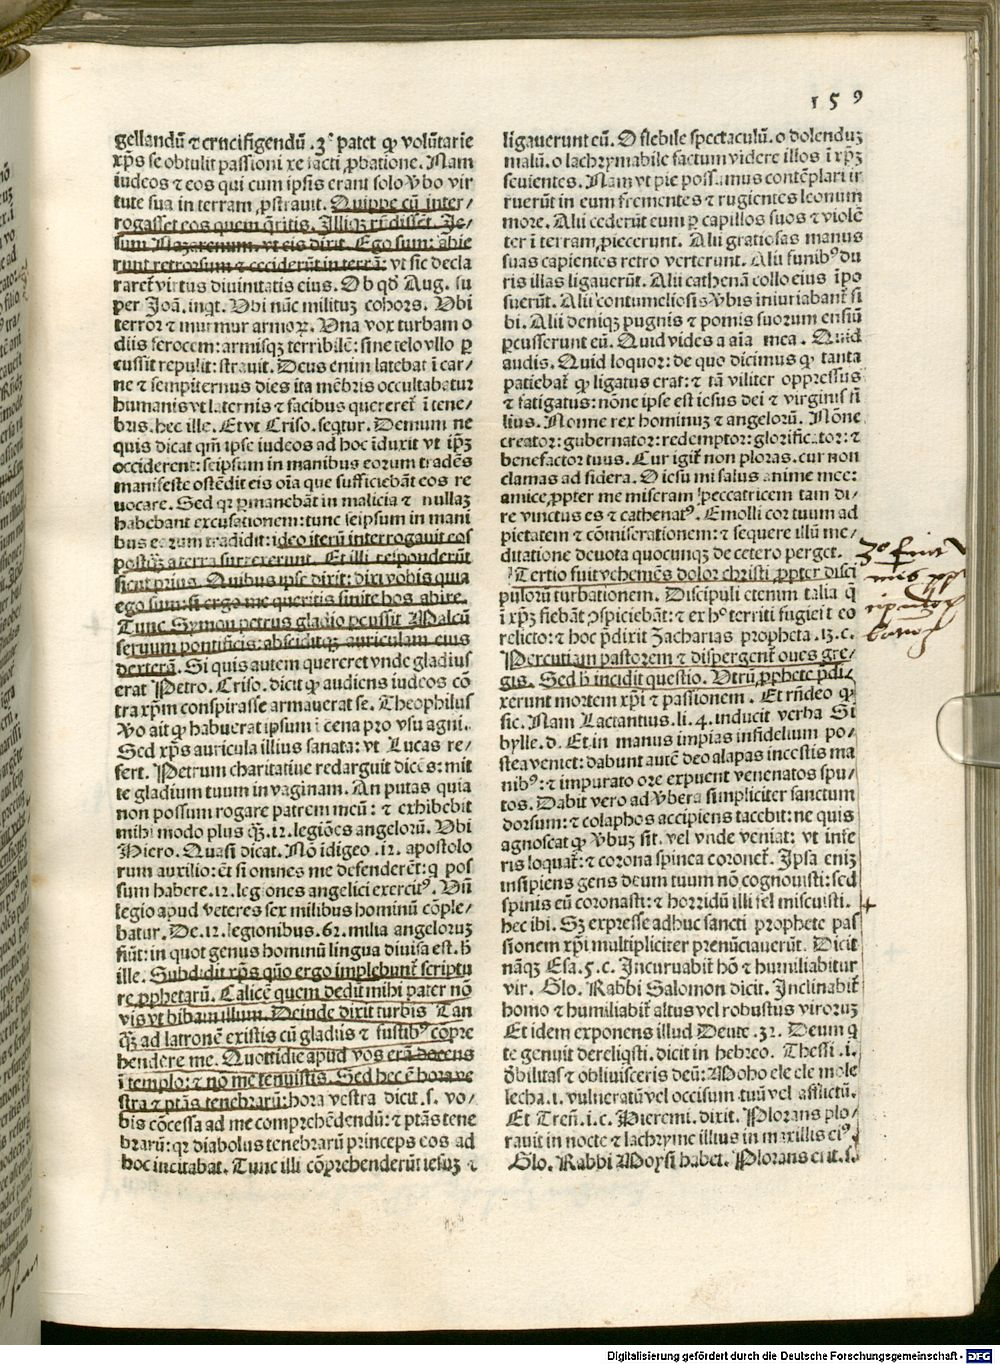 159
gellandū ⁊ crucifigendū .3ͦ patet ꝙ volūtarie
xp̄s se obtulit passioni ex facti ꝓbatione. Nam
iudeos ⁊ eos qui cum ipsis erant solo v̄bo vir
tute sua in terram ꝓstrauit. Quippe cū inter/
rogasset eos quem q̄ritis. Illiqꝫ rn̄disset. Je/
sum Nazarenum. vt eis dixit. Ego sum: abie
runt retrorsum ⁊ ceciderūt in terrā: vt sic decla
raret̄ virtus diuinitatis eius. Ob qd̄ Aug. su
per Joā. inqt. Vbi nūc militū cohors. Vbi
terror ⁊ murmur armoꝝ. Vna vox turbam o
diis ferocem: armisqꝫ terribilē: sine telo vllo ꝑ
cussit repulit: strauit. Deus enim latebat ī car/
ne ⁊ sempiternus dies ita mēbris occultabatur
humanis vt laternis ⁊ facibus quereret̄ ī tene/
bris. hec ille. Et vt Criso. seqtur. Demum ne
quis dicat qm̄ ipse iudeos ad hoc īduxit vt ip̄ꝫ
occiderent: seipsum in manibus eorum tradēs
manifeste ostēdit eis oīa que sufficiebāt eos re
uocare. Sed qꝛ ꝑmanebāt in malicia ⁊ nullaꝫ
habebant excusationem: tunc seipsum in mani
bus eorum tradidit: ideo iterū interrogauit eos
postqꝫ̄ a terra surrexerunt. Et illi responderūt
sicut prius. Quibus ipse dixit: dixi vobis quia
ego sum: si ergo me queritis sinite hos abire.
Tunc Symon petrus gladio ꝑcussit Malcū
seruum pontificis: absciditqꝫ auriculam eius
dexterā. Si quis autem quereret vnde gladius
erat Petro. Criso. dicit ꝙ audiens iudeos cō
tra xp̄m conspirasse armauerat se. Theophilus
v̄o ait ꝙ habuerat ipsum ī cena pro vsu agni.
Sed xp̄s auricula illius sanata: vt Lucas re/
fert. Petrum charitatiue redarguit dicēs: mit
te gladium tuum in vaginam. An putas quia
non possum rogare patrem meū: ⁊ exhibebit
mihi modo plus qꝫ̄ .12. legiōes angelorū. Vbi
Hiero. Quasi dicat. Nō īdigeo .12. apostolo
rum auxilio: ēt si omnes me defenderēt: q pos
sum habere .12. legiones angelici exercitꝰ. Vn̄
legio apud veteres sex milibus hominū cōple/
batur. De .12. legionibus .62. milia angeloruꝫ
fiūt: in quot genus hominū lingua diuisa est. h̄
ille. Subdidit xp̄s quō ergo implebunt̄ scriptu
re ꝓphetarū. Calicē quem dedit mihi pater nō
vis vt bibam illum. Deinde dixit turbis Tan
qꝫ̄ ad latronē existis cū gladiis ⁊ fustibꝰ cōpre
hendere me. Quottidie apud vos erā docens
ī templo: ⁊ nō me tenuistis. Sed hec ē hora ve
stra ⁊ ptās tenebrarū: hora vestra dicit .s. vo/
bis cōcessa ad me comprehēdendū: ⁊ ptās tene
brarū: qꝛ diabolus tenebrarū princeps eos ad
hoc incitabat. Tunc illi cōprehenderūt iesuꝫ ⁊
ligauerunt eū. O flebile spectaculū. o dolenduꝫ
malū. o lachrymabile factum videre illos ī xp̄ꝫ
seuientes. Nam vt pie possumus contēplari ir
ruerūt in eum frementes ⁊ rugientes leonum
more. Alii cederūt eum ꝑ capillos suos ⁊ violē
ter ī terram ꝓiecerunt. Alii gratiosas manus
suas capientes retro verterunt. Alii funibꝰ du
ris illas ligauerūt. Alii cathenā collo eius īpo
suerūt. Alii contumeliosis v̄bis iniuriabant̄ si
bi. Alii deniqꝫ pugnis ⁊ pomis suorum ensiū
ꝑcusserunt eū. Quid vides a aīa mea. Quid
audis. Quid loquor: de quo dicimus ꝙ tanta
patiebat̄ ꝙ ligatus erat: ⁊ tā viliter oppressus
⁊ fatigatus: nōne ipse est iesus dei ⁊ virginis fi
lius. Nonne rex hominuꝫ ⁊ angelorū. Nōne
creator: gubernator: redemptor: glorificator: ⁊
benefactor tuus. Cur igit̄ non ploras. cur non
clamas ad sidera. O iesu mi salus anime mee:
amice ꝓpter me miseram peccatricem tam di/
re vinctus es ⁊ cathenatꝰ. Emolli cor tuum ad
pietatem ⁊ cōmiserationem: ⁊ sequere illū me/
ditatione deuota quocunqꝫ de cetero perget.
Tertio fuit vehemēs dolor christi ꝓpter disci
pulorū turbationem. Discipuli etenim talia q̄
ī xp̄ꝫ fiebāt ꝯspiciebāt: ⁊ ex hͦ territi fugiēt eo
relicto: ⁊ hoc p̄dixit Zacharias propheta .13. c.
Percutiam pastorem ⁊ dispergent̄ oues gre/
gis. Sed h̄ incidit questio. Vtrū ꝓphete p̄di/
xerunt mortem xp̄i ⁊ passionem. Et rn̄deo ꝙ
sic. Nam Lactantius. li. 4. inducit verba Si
bylle. d. Et in manus impias infidelium po/
stea veniet: dabunt autē deo alapas incestis ma
nibꝰ: ⁊ impurato ore expuent venenatos spu/
tos. Dabit vero ad v̄bera simpliciter sanctum
dorsum: ⁊ colaphos accipiens tacebit: ne quis
agnoscat ꝙ v̄buꝫ sit. vel vnde veniat: vt infe
ris loquat̄: ⁊ corona spinea coronet̄. Ipsa eniꝫ
insipiens gens deum tuum nō cognouisti: sed
spinis eū coronasti: ⁊ horridū illi fel miscuisti.
hec ibi. Sꝫ expresse adhuc sancti prophete pas
sionem xp̄i multipliciter prenūciauerūt. Dicit
nāqꝫ Esa. 5. c. Incuruabit̄ hō ⁊ humiliabitur
vir. Glo. Rabbi Salomon dicit. Inclinabit̄
homo ⁊ humiliabit̄ altus vel robustus viroruꝫ
Et idem exponens illud Deute. 32. Deum q
te genuit dereliqsti. dicit in hebreo. Thessi .i.
d̄bilitas ⁊ obliuisceris deū: Moho ele ele mole
lecha .i. vulneratū vel occisum tuū vel afflictū.
Et Tren̄. i. c. Hieremi. dixit. Plorans plo/
rauit in nocte ⁊ lachryme illius in maxillis eiꝰ.
Glo. Rabbi Moysi habet. Plorans erit .s.